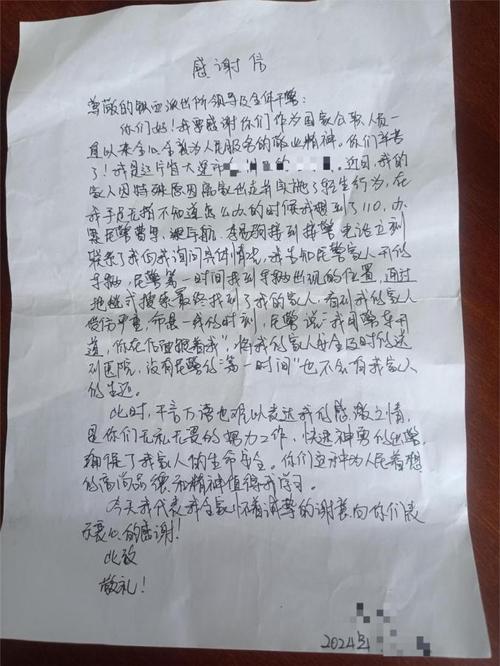 感谢信
尊敬的铁西派出所领导及全体干警：
你们好！我要感谢你们作为国家公职人员一
直以来全心全意为人民服务的敬业精神。你们辛苦
了！我是辽宁省大连市，近日，我的
家人因特殊原因离家出走并实施了轻生行为，在
我手足无措不知道怎么办的时候我想到了110，办
案民警 接到接警电话立刻
联系了我向我询问具体情况，我告知民警家人开的
车辆，民警第一时间找到车辆出现的位置，通过
地毯式搜索最终找到了我的家人，看到我的家人
受伤严重，命悬一线的时刻，民警说："我用警车开
道，你在后面跟着我"，将我的家人安全及时的送
到医院，没有民警的"第一时间"也不会有我家人
的生还。
此时，千言万语也难以表达我的感激之情，
是你们无私无畏的努力工作，快速神勇的出警，
确保了我家人的生命安全。你们这种为人民着想
的高尚品德和精神值得我学习。
今天我代表我全家怀着诚挚的谢意向你们表
示衷心的感谢！
此致
敬礼！
2024年